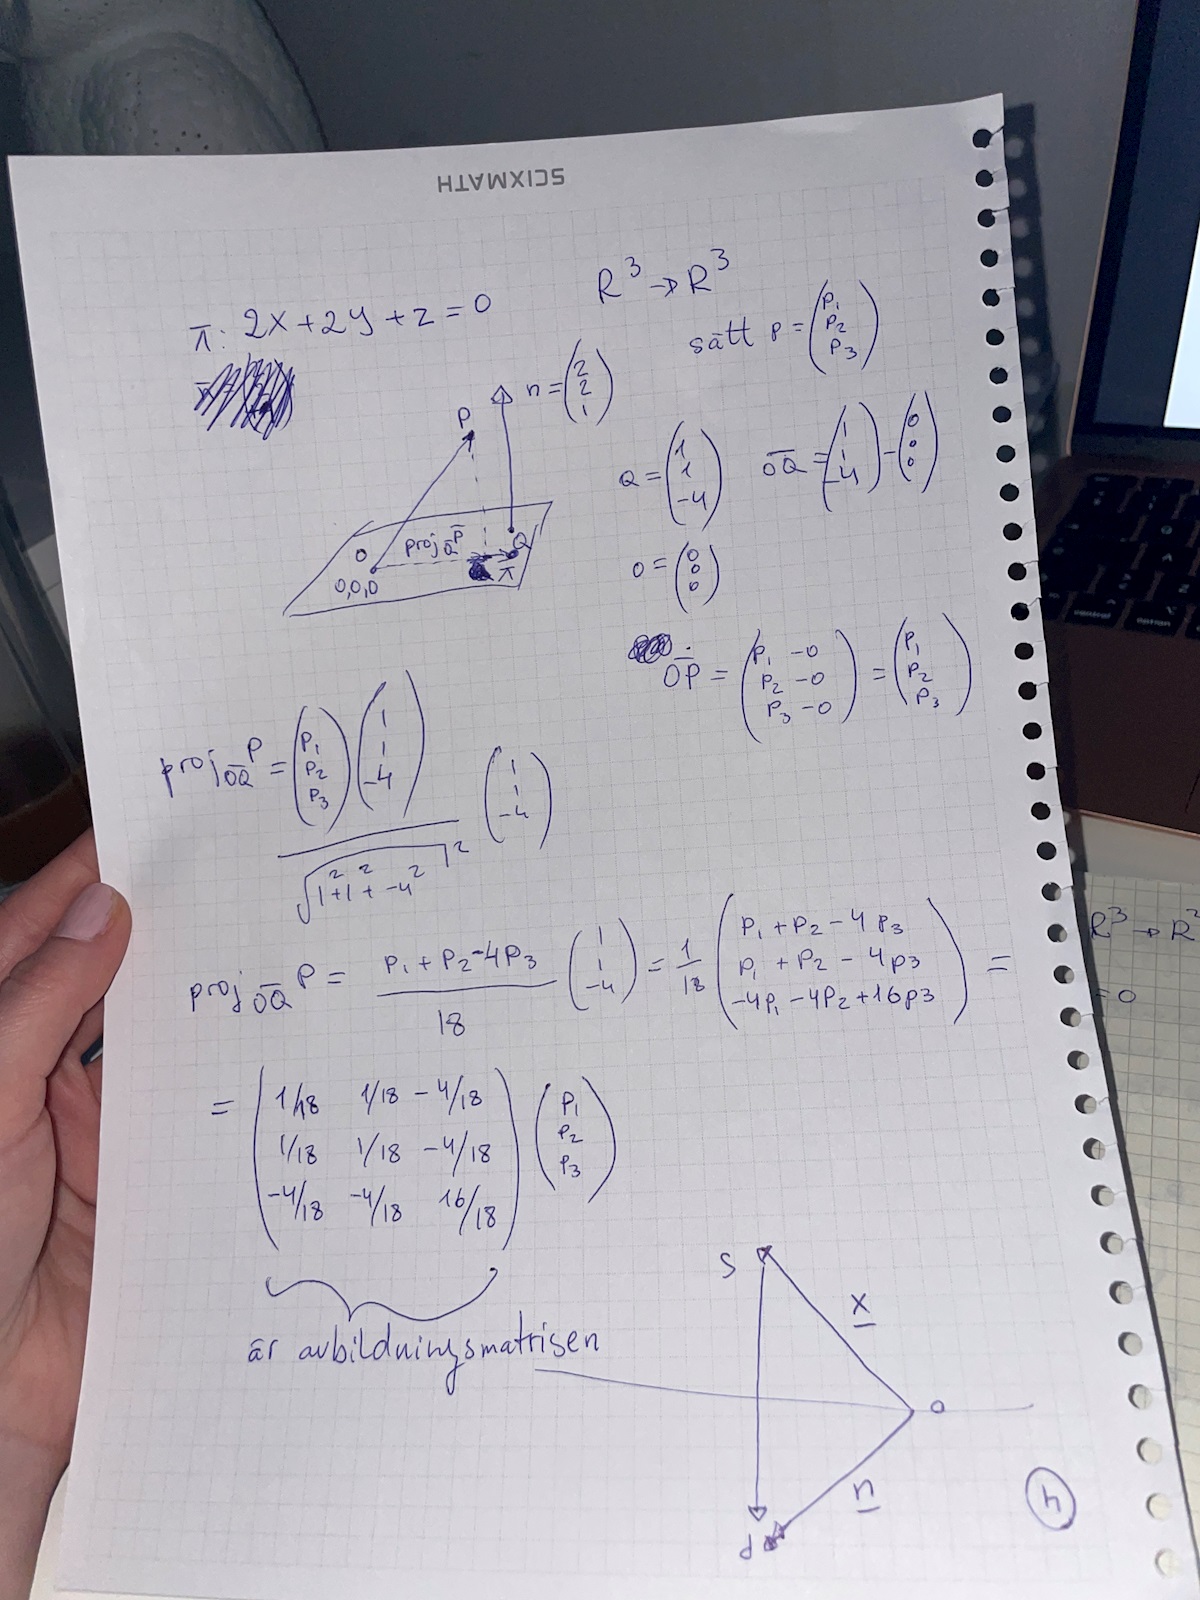 SCIXMATH
π: 2x+2y+z=0
R³→R³
sätt p=(p₁ p₂ p₃)
n=(2 2 1)
P
Q=(1 1 -4) OQ=(1 1 -4)-(0 0 0)
O proj OQ P Q
0,0,0 π
O=(0 0 0)
OP=(p₁-0 p₂-0 p₃-0)=(p₁ p₂ p₃)
proj OQ P=(p₁ p₂ p₃)(1 1 -4)/√(1²+1²+-4²)² (1 1 -4)
proj OQ P = (p₁+p₂-4p₃)/18 (1 1 -4) = 1/18 (p₁+p₂-4p₃ p₁+p₂-4p₃ -4p₁-4p₂+16p₃) =
= (1/18 1/18 -4/18
1/18 1/18 -4/18
-4/18 -4/18 16/18) (p₁ p₂ p₃)
är avbildningsmatrisen
S
x
0
n
R³→R²
=0
control
option